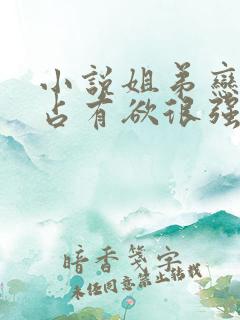 小說姐弟戀
占有欲很强
暗香笺字
未经同意禁止转载